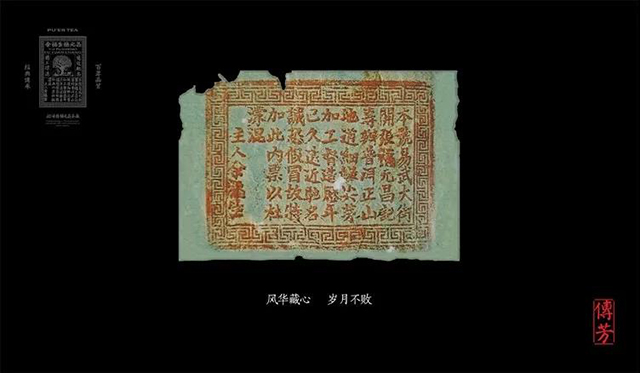 PU'ER TEA
本號易武大街
開張福元昌記
專辦普洱正山
地道細嫩尖芽
加工督造歷年
已久遠近馳名
誠恐假冒故特
加此內票以杜
濛混
主人余福生
风华藏心 岁月不败
傳芳